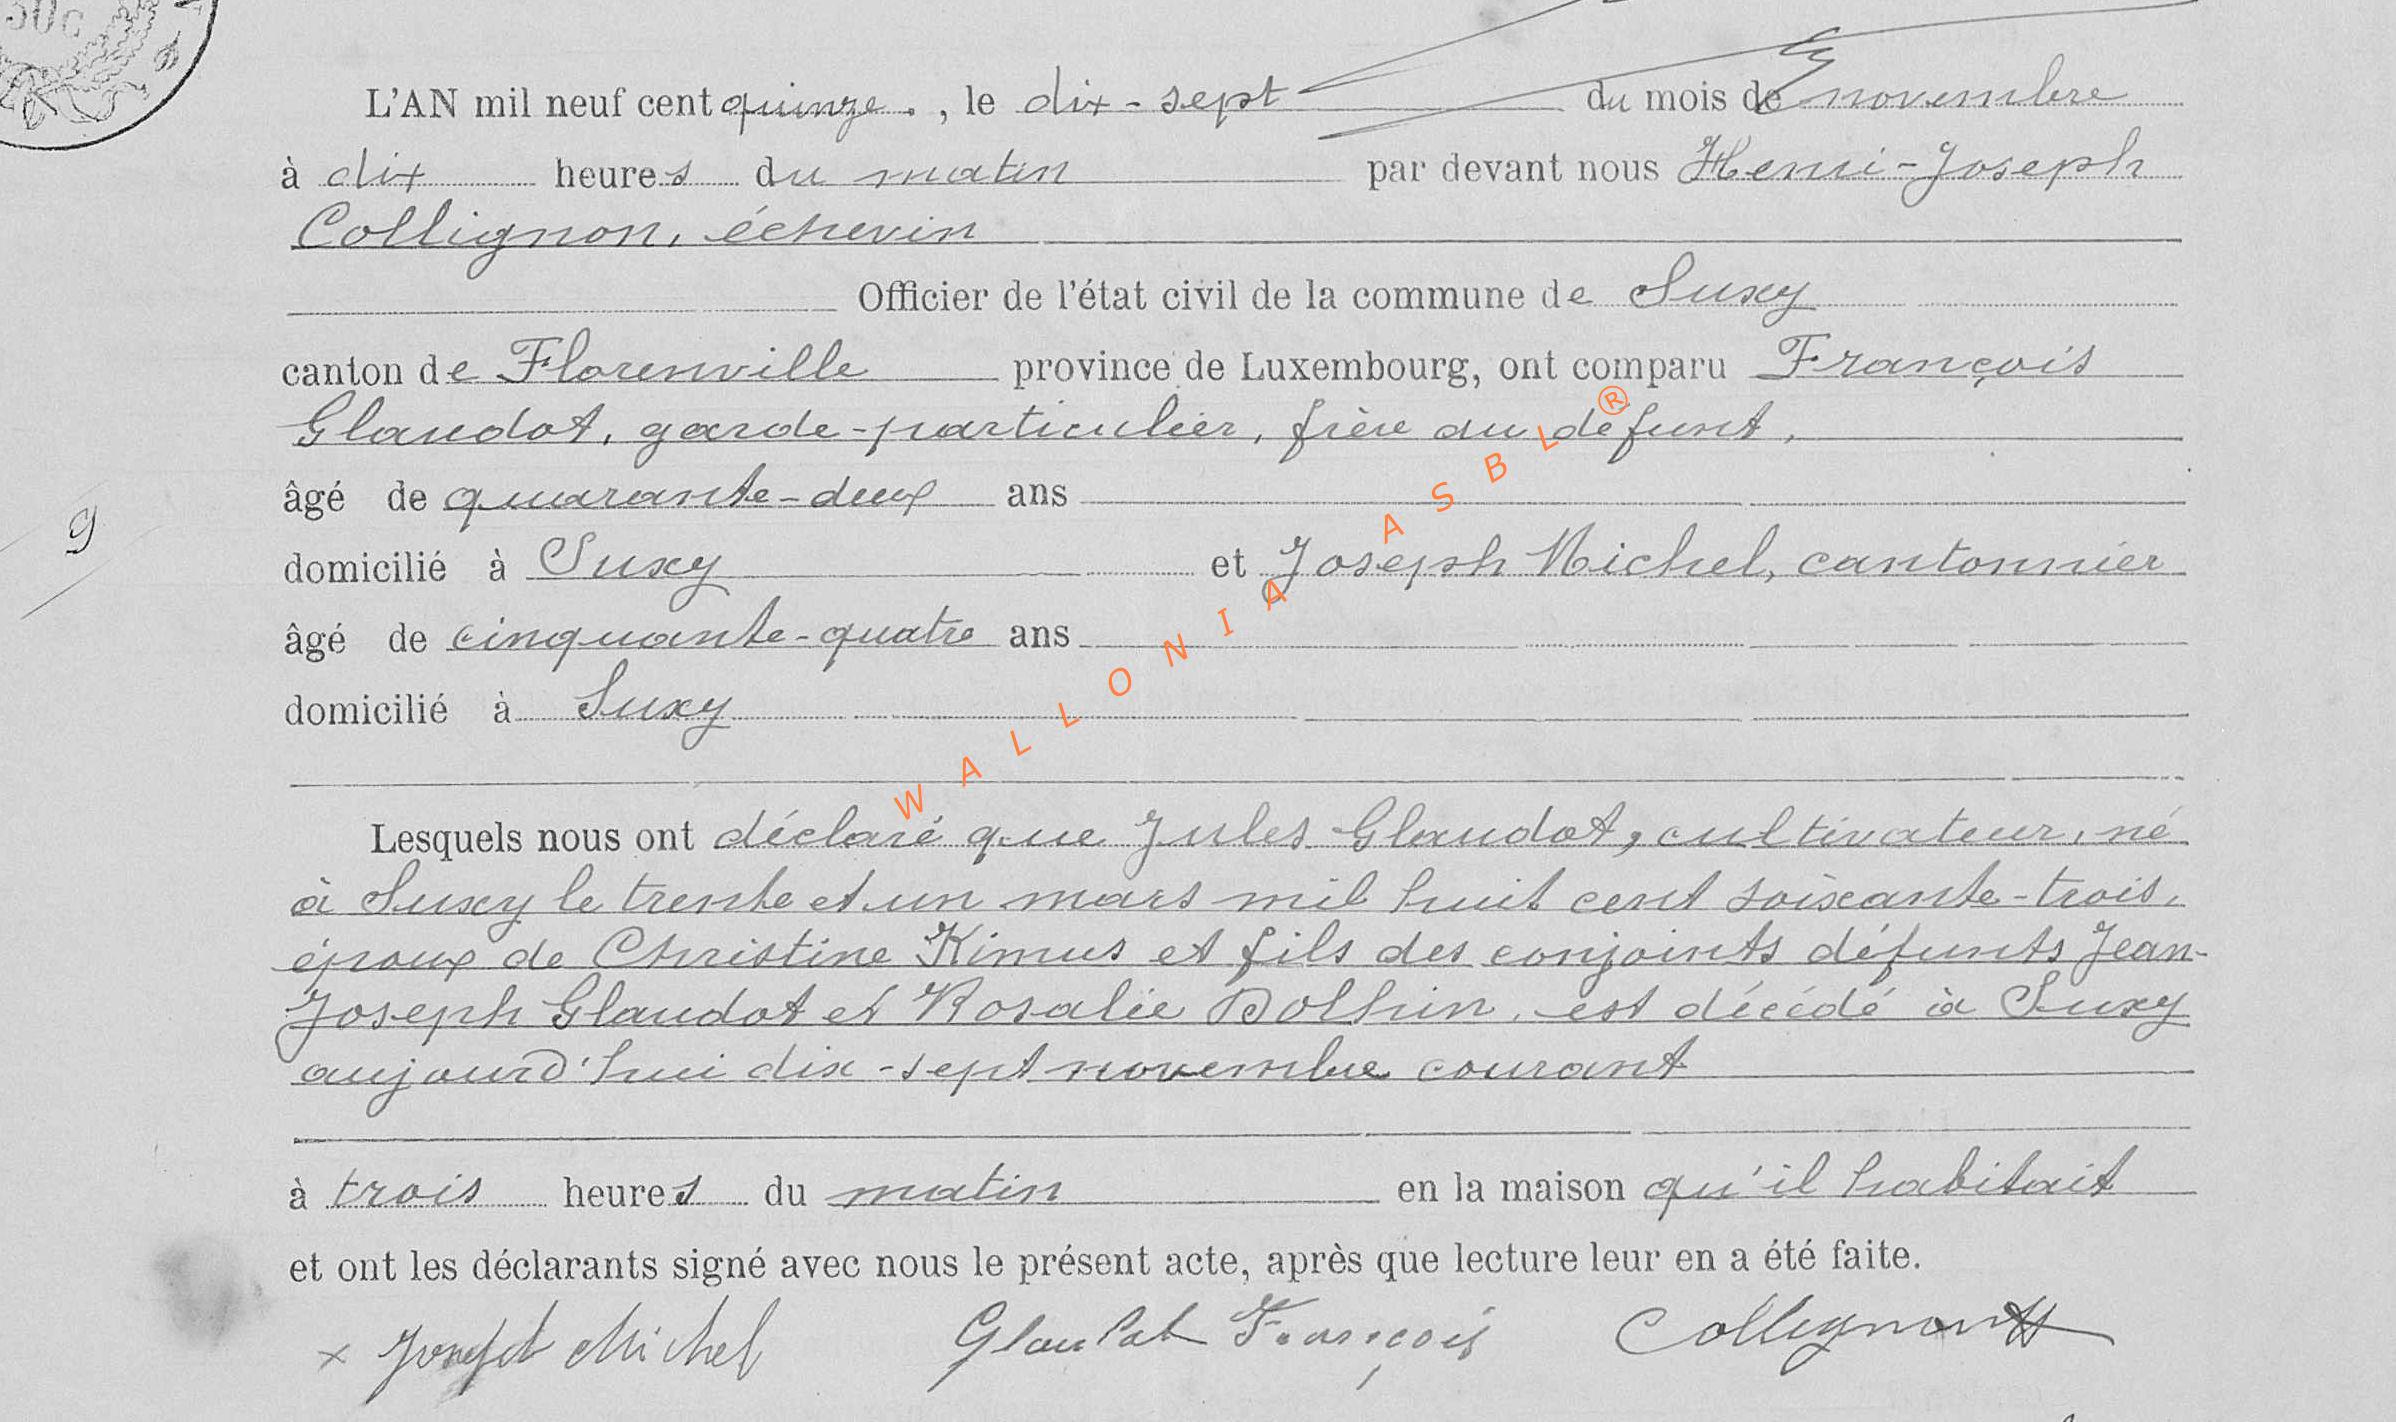 50c
L'AN mil neuf cent quinze. , le dix-sept du mois de novembre
à dix heures du matin par devant nous Henri-Joseph
Collignon, échevin
Officier de l'état civil de la commune de Suxy
canton de Florenville province de Luxembourg, ont comparu François
Glaudot, garde-particulier, frère du défunt,
âgé de quarante-deux ans
domicilié à Suxy et Joseph Michel, cantonnier
âgé de cinquante-quatre ans
domicilié à Suxy
Lesquels nous ont déclaré que Jules Glaudot, cultivateur, né
à Suxy le trente et un mars mil huit cent soixante-trois,
époux de Christine Kimus et fils des conjoints défunts Jean-
Joseph Glaudot et Rosalie Dolhin, est décédé à Suxy
aujourd'hui dix-sept novembre courant
à trois heures du matin en la maison qu'il habitait
et ont les déclarants signé avec nous le présent acte, après que lecture leur en a été faite.
x Joseph Michel Glaudot François Collignon
9
WALLONIA ASBL ®